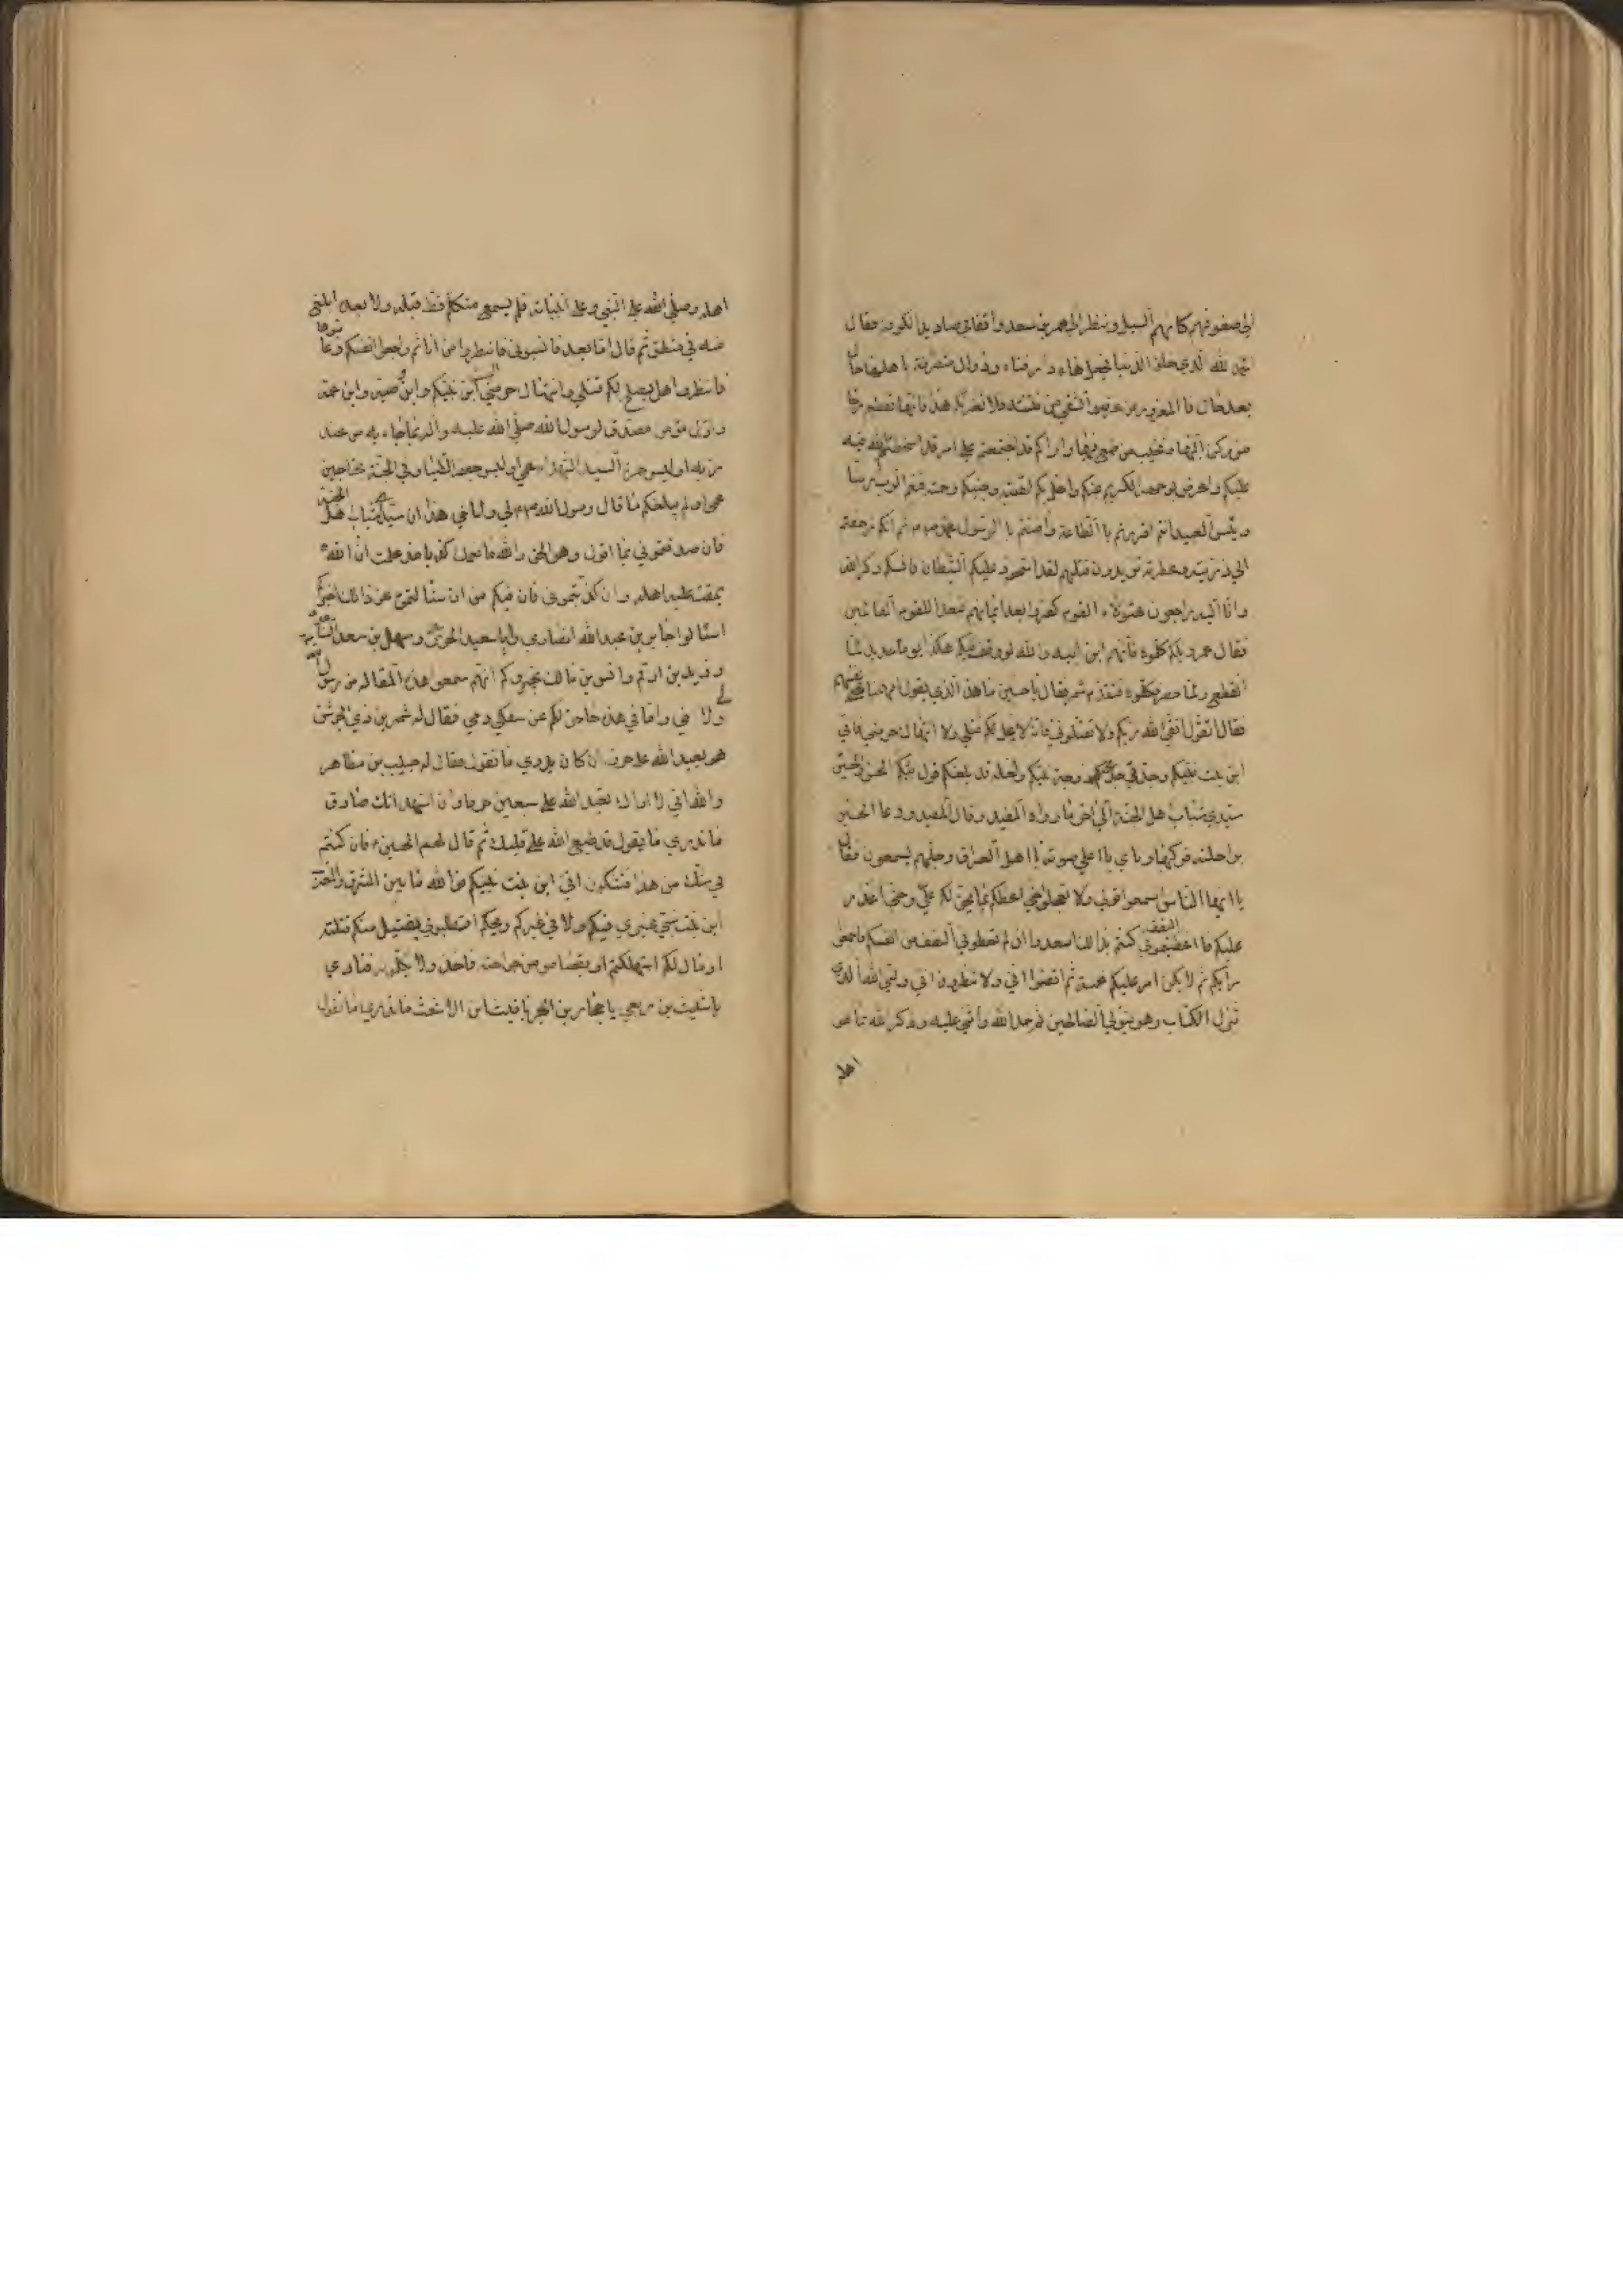 الى صفوفهم كانهم السيل ونظر الى عمر بن سعد واقفا في صناديد الكوفة فقال
الحمد لله الذي خلق الدنيا فجعلها دار فناء وزوال متصرفة باهلها حالا
بعد حال فالمغرور من غرته والشقي من فتنته فلا تغرنكم هذه فانها تقطع رجا
من ركن اليها وتخيب من طمع فيها واراكم قد اجتمعتم على امر قد اسخطتم الله فيه
عليكم واعرض بوجهه الكريم عنكم واحل بكم نقمته وجنبكم رحمته فنعم الرب ربنا
وبئس العبيد انتم اقررتم بالطاعة وامنتم بالرسول محمد ص ثم انكم زحفتم
الى ذريته وعترته تريدون قتلهم لقد استحوذ عليكم الشيطان فانسكم ذكر الله
وانا اليه راجعون هئولاء القوم كفروا بعد ايمانهم فبعدا للقوم الظالمين
فقال عمر ويلكم كلموه فانه ابن ابيه والله لو وقف فيكم هكذا يوما جديدا لما
انقطع ولما حصر فكلموه فتقدم شمر فقال يا حسين ما هذا الذي تقول افهمنا حتى نفهم
فقال اقول اتقوا الله ربكم ولا تقتلوني فانه لا يحل لكم قتلي ولا انتهاك حرمتي فاني
ابن بنت نبيكم وجدتي خديجة زوجة نبيكم ولعله قد بلغكم قول نبيكم الحسن والحسين
سيدي شباب اهل الجنة الى اخر ما رواه المفيد وقال المفيد ودعا الحسين
براحلته فركبها ونادي باعلي صوته يا اهل العراق وجلهم يسمعون فقال
يا ايها الناس اسمعوا قولي ولا تعجلوا حتى اعظكم بما يحق لكم علي وحتى اعذر
عليكم فان اعطيتموني النصف كنتم بذالك اسعد وان لم تعطوني النصف من انفسكم فاجمعوا
رأيكم ثم لا يكن امركم عليكم غمة ثم اقضوا الي ولا تنظرون ان وليي الله الذي
نزل الكتاب وهو يتولي الصالحين ثم حمد الله واثنى عليه وذكر الله بما هو
اهله
اهله وصلى الله على النبي وعلى انبيائه فلم يسمع متكلم قط قبله ولا بعده ابلغ
منه في منطق ثم قال اما بعد فانسبوني فانظروا من انا ثم راجعوا انفسكم وعاتبوها
فانظروا هل يصلح لكم قتلي وانتهاك حرمتي الست ابن نبيكم وابن وصيه وابن عمه
واول مؤمن مصدق لرسول الله صلى الله عليه واله بما جاء به من عند
ربه اوليس حمزة السيد الشهداء عمي اوليس جعفر الطيار في الجنة بجناحين
عمي اولم يبلغكم ما قال رسول الله ص لي ولاخي هذان سيدا شباب اهل الجنة
فان صدقتموني بما اقول وهو الحق والله ما تعمدت كذبا منذ علمت ان الله
يمقت عليه اهله وان كذبتموني فان فيكم من ان سئلتموه عن ذالك اخبركم
اسئالوا جابر بن عبد الله انصاري وابا سعيد الخدري وسهل بن سعد الساعدي
وزيد بن ارقم وانس بن مالك يخبروكم انهم سمعوا هذه المقالة من رسول الله
لي ولاخي واما في هذه حاجز لكم عن سفك دمي فقال له شمر بن ذي الجوشن
هو يعبد الله على حرف ان كان يدري ما تقول فقال له حبيب بن مظاهر
والله اني لا اراك تعبد الله على سبعين حرفا وانا اشهد انك صادق
ما تدري ما يقول قد طبع الله على قلبك ثم قال لهم الحسين ع فان كنتم
في شك من هذا فتشكون اني ابن بنت نبيكم فوالله ما بين المشرق والمغرب
ابن بنت نبي غيري فيكم ولا في غيركم ويحكم اتطلبوني بقتيل منكم قتلته
او مال لكم استهلكته او بقصاص من جراحة فاخذوا لا يكلمونه فنادي
يا شبث بن ربعي يا حجار بن ابجر يا قيس بن الاشعث ما تدري ما تقول